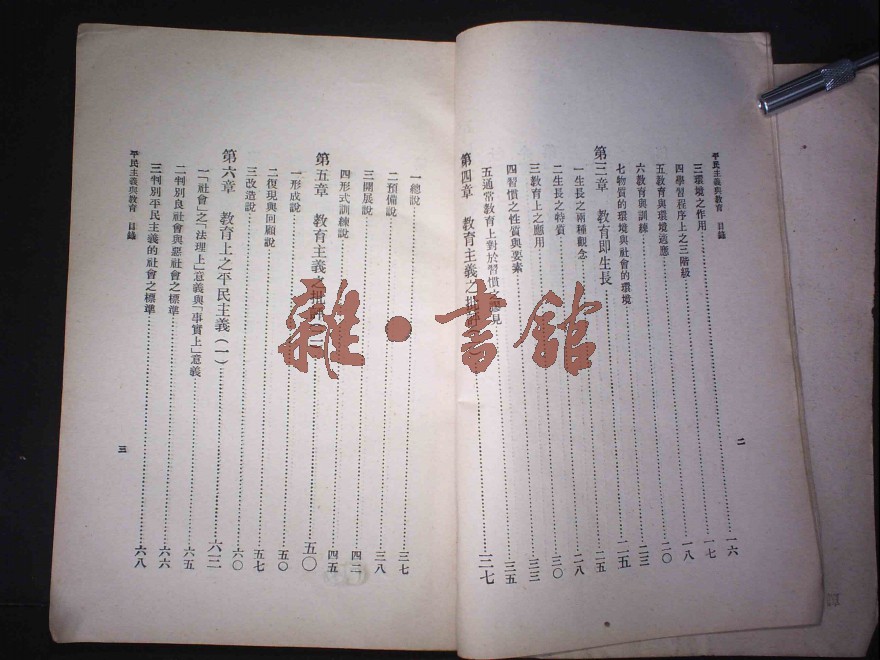 平民主義與教育 目錄
三環境之作用 一六
四學習程序上之三階級 一七
五教育與環境適應 一八
六教育與訓練 二〇
七物質的環境與社會的環境 二三
第三章 教育即生長 二五
一生長之兩種觀念 二五
二生長之特質 二八
三教育上之應用 三〇
四習慣之性質與要素 三三
五通常教育上對於習慣 見 三五
第四章 教育主義之批 三七
二
一總說 三七
二預備說 三八
三開展說 四二
四形式訓練說 四五
第五章 教育主義之批 五〇
一形成說 五〇
二復現與回顧說 五七
三改造說 六〇
第六章 教育上之平民主義(一) 六三
一「社會」之「法理上」意義與「事實上」意義 六五
二判別良社會與惡社會之標準 六六
三判別平民主義的社會之標準 六八
平民主義與教育 目錄
三
雜·書館